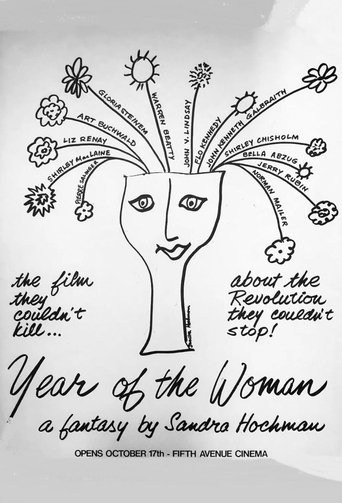 GLORIA STEINEM
WARREN BEATTY
JOHN V. LINDSAY
FLO KENNEDY
JOHN KENNETH GALBRAITH
ART BUCHWALD
LIZ RENAY
SHIRLEY MacLAINE
PIERRE SALINGER
SHIRLEY CHISHOLM
BELLA ABZUG
JERRY RUBIN
NORMAN MAILER
the film
they
couldn't
kill...
about the
Revolution
they couldn't
stop!
Year of the Woman
a fantasy by Sandra Hochman
OPENS OCTOBER 17th - FIFTH AVENUE CINEMA